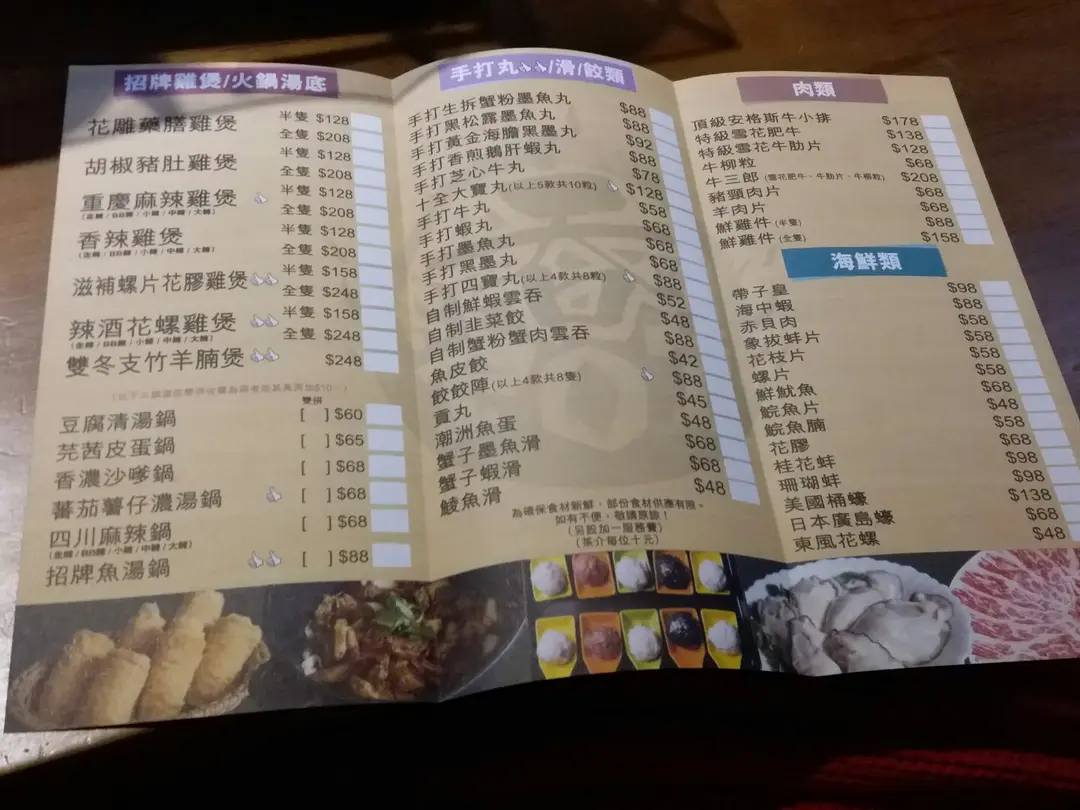 招牌雞煲/火鍋湯底
花雕藥膳雞煲 半隻 $128
全隻 $208
胡椒豬肚雞煲 半隻 $128
全隻 $208
重慶麻辣雞煲 半隻 $128
(走辣/BB辣/小辣/中辣/大辣) 全隻 $208
香辣雞煲 半隻 $128
(走辣/BB辣/小辣/中辣/大辣) 全隻 $208
滋補螺片花膠雞煲 半隻 $158
全隻 $248
辣酒花螺雞煲 半隻 $158
(走辣/BB辣/小辣/中辣/大辣) 全隻 $248
雙冬支竹羊腩煲 $248
雙拼
豆腐清湯鍋 [ ] $60
芫茜皮蛋鍋 [ ] $65
香濃沙嗲鍋 [ ] $68
蕃茄薯仔濃湯鍋 [ ] $68
四川麻辣鍋 [ ] $68
(走辣/BB辣/小辣/中辣/大辣)
招牌魚湯鍋 [ ] $88
手打丸/滑/餃類
手打生拆蟹粉墨魚丸 $88
手打黑松露墨魚丸 $88
手打黃金海膽黑墨丸 $92
手打香煎鵝肝蝦丸 $88
手打芝心牛丸 $78
十全大寶丸(以上5款共10粒) $128
手打牛丸 $58
手打蝦丸 $68
手打墨魚丸 $68
手打黑墨丸 $68
手打四寶丸(以上4款共8粒) $88
自制鮮蝦雲吞 $52
自制韭菜餃 $48
自制蟹粉蟹肉雲吞 $88
魚皮餃 $42
餃餃陣(以上4款共8隻) $88
貢丸 $45
潮洲魚蛋 $48
蟹子墨魚滑 $68
蟹子蝦滑 $68
鯪魚滑 $48
為確保食材新鮮，部份食材供應有限。
如有不便，敬請原諒！
(另設加一服務費)
(茶介每位十元)
肉類
頂級安格斯牛小排 $178
特級雪花肥牛 $138
特級雪花牛肋片 $128
牛柳粒 $68
牛三郎(雪花肥牛、牛肋片、牛柳粒) $208
豬頸肉片 $68
羊肉片 $68
鮮雞件(半隻) $88
鮮雞件(全隻) $158
海鮮類
帶子皇 $98
海中蝦 $88
赤貝肉 $58
象拔蚌片 $58
花枝片 $58
螺片 $58
鮮魷魚 $68
鯇魚片 $48
鯇魚腩 $58
花膠 $68
桂花蚌 $98
珊瑚蚌 $98
美國桶蠔 $138
日本廣島蠔 $68
東風花螺 $48